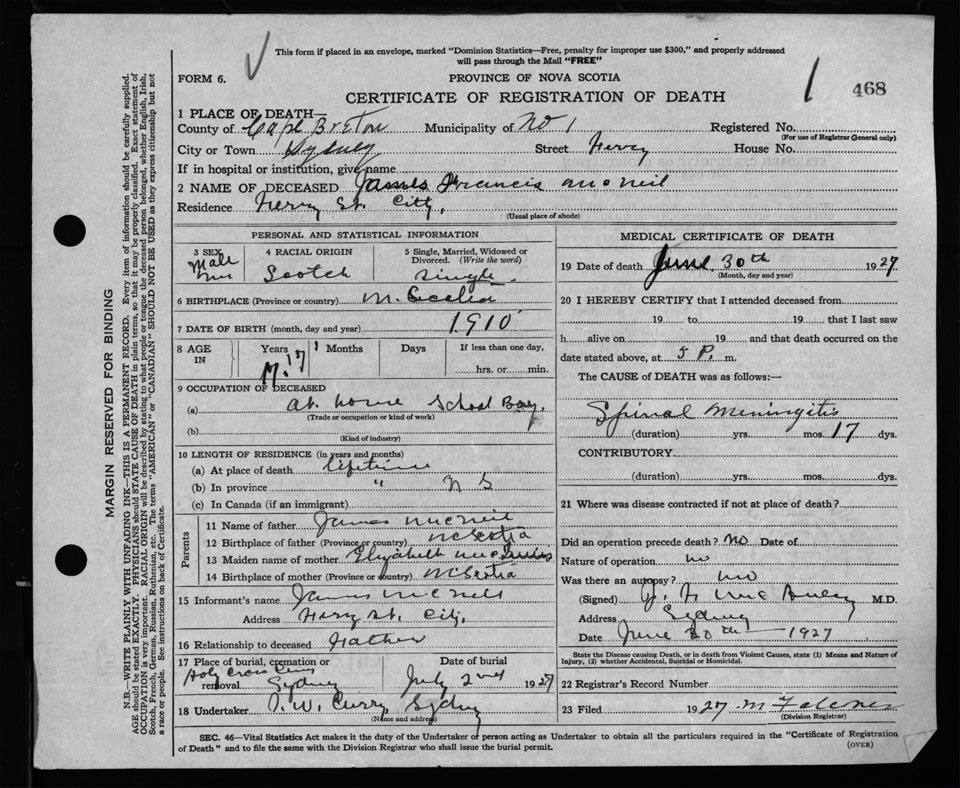 This form if placed in an envelope, marked "Dominion Statistics—Free, penalty for improper use $300," and properly addressed
will pass through the Mail "FREE"
FORM 6.
PROVINCE OF NOVA SCOTIA
1 468
CERTIFICATE OF REGISTRATION OF DEATH
1 PLACE OF DEATH—
County of Cape Breton Municipality of No 1 Registered No.
(For use of Registrar General only)
City or Town Sydney Street House No.
If in hospital or institution, give name
2 NAME OF DECEASED James Francis McNeil
Residence St. City.
(Usual place of abode)
PERSONAL AND STATISTICAL INFORMATION
3 SEX Male
4 RACIAL ORIGIN Scotch
5 Single, Married, Widowed or Divorced. (Write the word) Single
6 BIRTHPLACE (Province or country)
7 DATE OF BIRTH (month, day and year) 1910
8 AGE IN Years 17 Months Days If less than one day, hrs. or min.
9 OCCUPATION OF DECEASED
(a) at home School Boy.
(Trade or occupation or kind of work)
(b)
(Kind of industry)
10 LENGTH OF RESIDENCE (in years and months)
(a) At place of death lifetime
(b) In province " N S
(c) In Canada (if an immigrant)
Parents
11 Name of father James McNeil
12 Birthplace of father (Province or country) N Scotia
13 Maiden name of mother Elizabeth
14 Birthplace of mother (Province or country) N Scotia
15 Informant's name James McNeil
Address St. City.
16 Relationship to deceased Father
17 Place of burial, cremation or removal Holy Cross Cem Sydney
Date of burial July 2nd 1927
18 Undertaker Curry Sydney
(Name and address)
MEDICAL CERTIFICATE OF DEATH
19 Date of death June 30th 1927
(Month, day and year)
20 I HEREBY CERTIFY that I attended deceased from
19 to 19 that I last saw
h alive on 19 and that death occurred on the
date stated above, at 5 P. m.
The CAUSE of DEATH was as follows:—
Spinal Meningitis
(duration) yrs. mos. 17 dys.
CONTRIBUTORY
(duration) yrs. mos. dys.
21 Where was disease contracted if not at place of death?
Did an operation precede death? No Date of
Nature of operation no
Was there an autopsy? no
(Signed) M.D.
Address Sydney
Date June 30th 1927
State the Disease causing Death, or in death from Violent Causes, state (1) Means and Nature of
Injury, (2) whether Accidental, Suicidal or Homicidal.
22 Registrar's Record Number
23 Filed 1927
(Division Registrar)
SEC. 46—Vital Statistics Act makes it the duty of the Undertaker or person acting as Undertaker to obtain all the particulars required in the "Certificate of Registration
of Death" and to file the same with the Division Registrar who shall issue the burial permit.
(OVER)
MARGIN RESERVED FOR BINDING
N.B.—WRITE PLAINLY WITH UNFADING INK—THIS IS A PERMANENT RECORD. Every item of information should be carefully supplied.
AGE should be stated EXACTLY. PHYSICIANS should STATE CAUSE OF DEATH in plain terms, so that it may be properly classified. Exact statement of
OCCUPATION is very important. RACIAL ORIGIN will be described by stating to what people or tongue the deceased person belonged, whether English, Irish,
Scotch, French, German, Russian, Ruthenian, etc. The terms "AMERICAN" or "CANADIAN" SHOULD NOT BE USED as they express citizenship but not
a race or people. See instructions on back of Certificate.